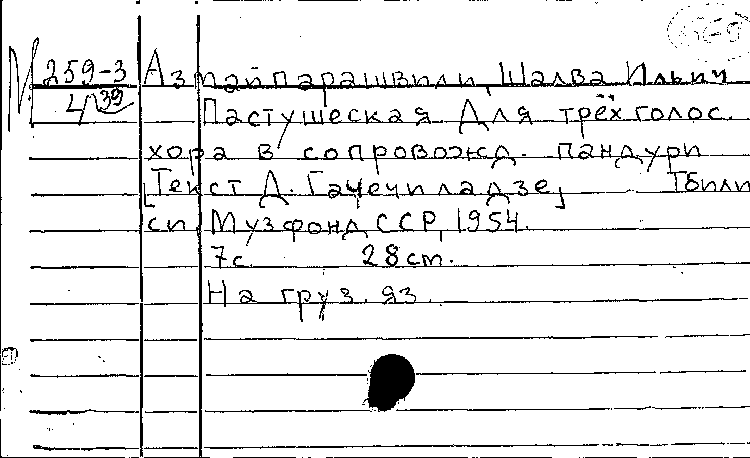 М 259-3 Азмайпарашвили, Шалва Ильич
4/39 Пастушеская. Для трёхголос.
хора в сопровожд. пандури
[Текст Д. Гачечиладзе] Тбили
си, Музфонд ССР, 1954.
7с 28 cm.
На груз. яз.